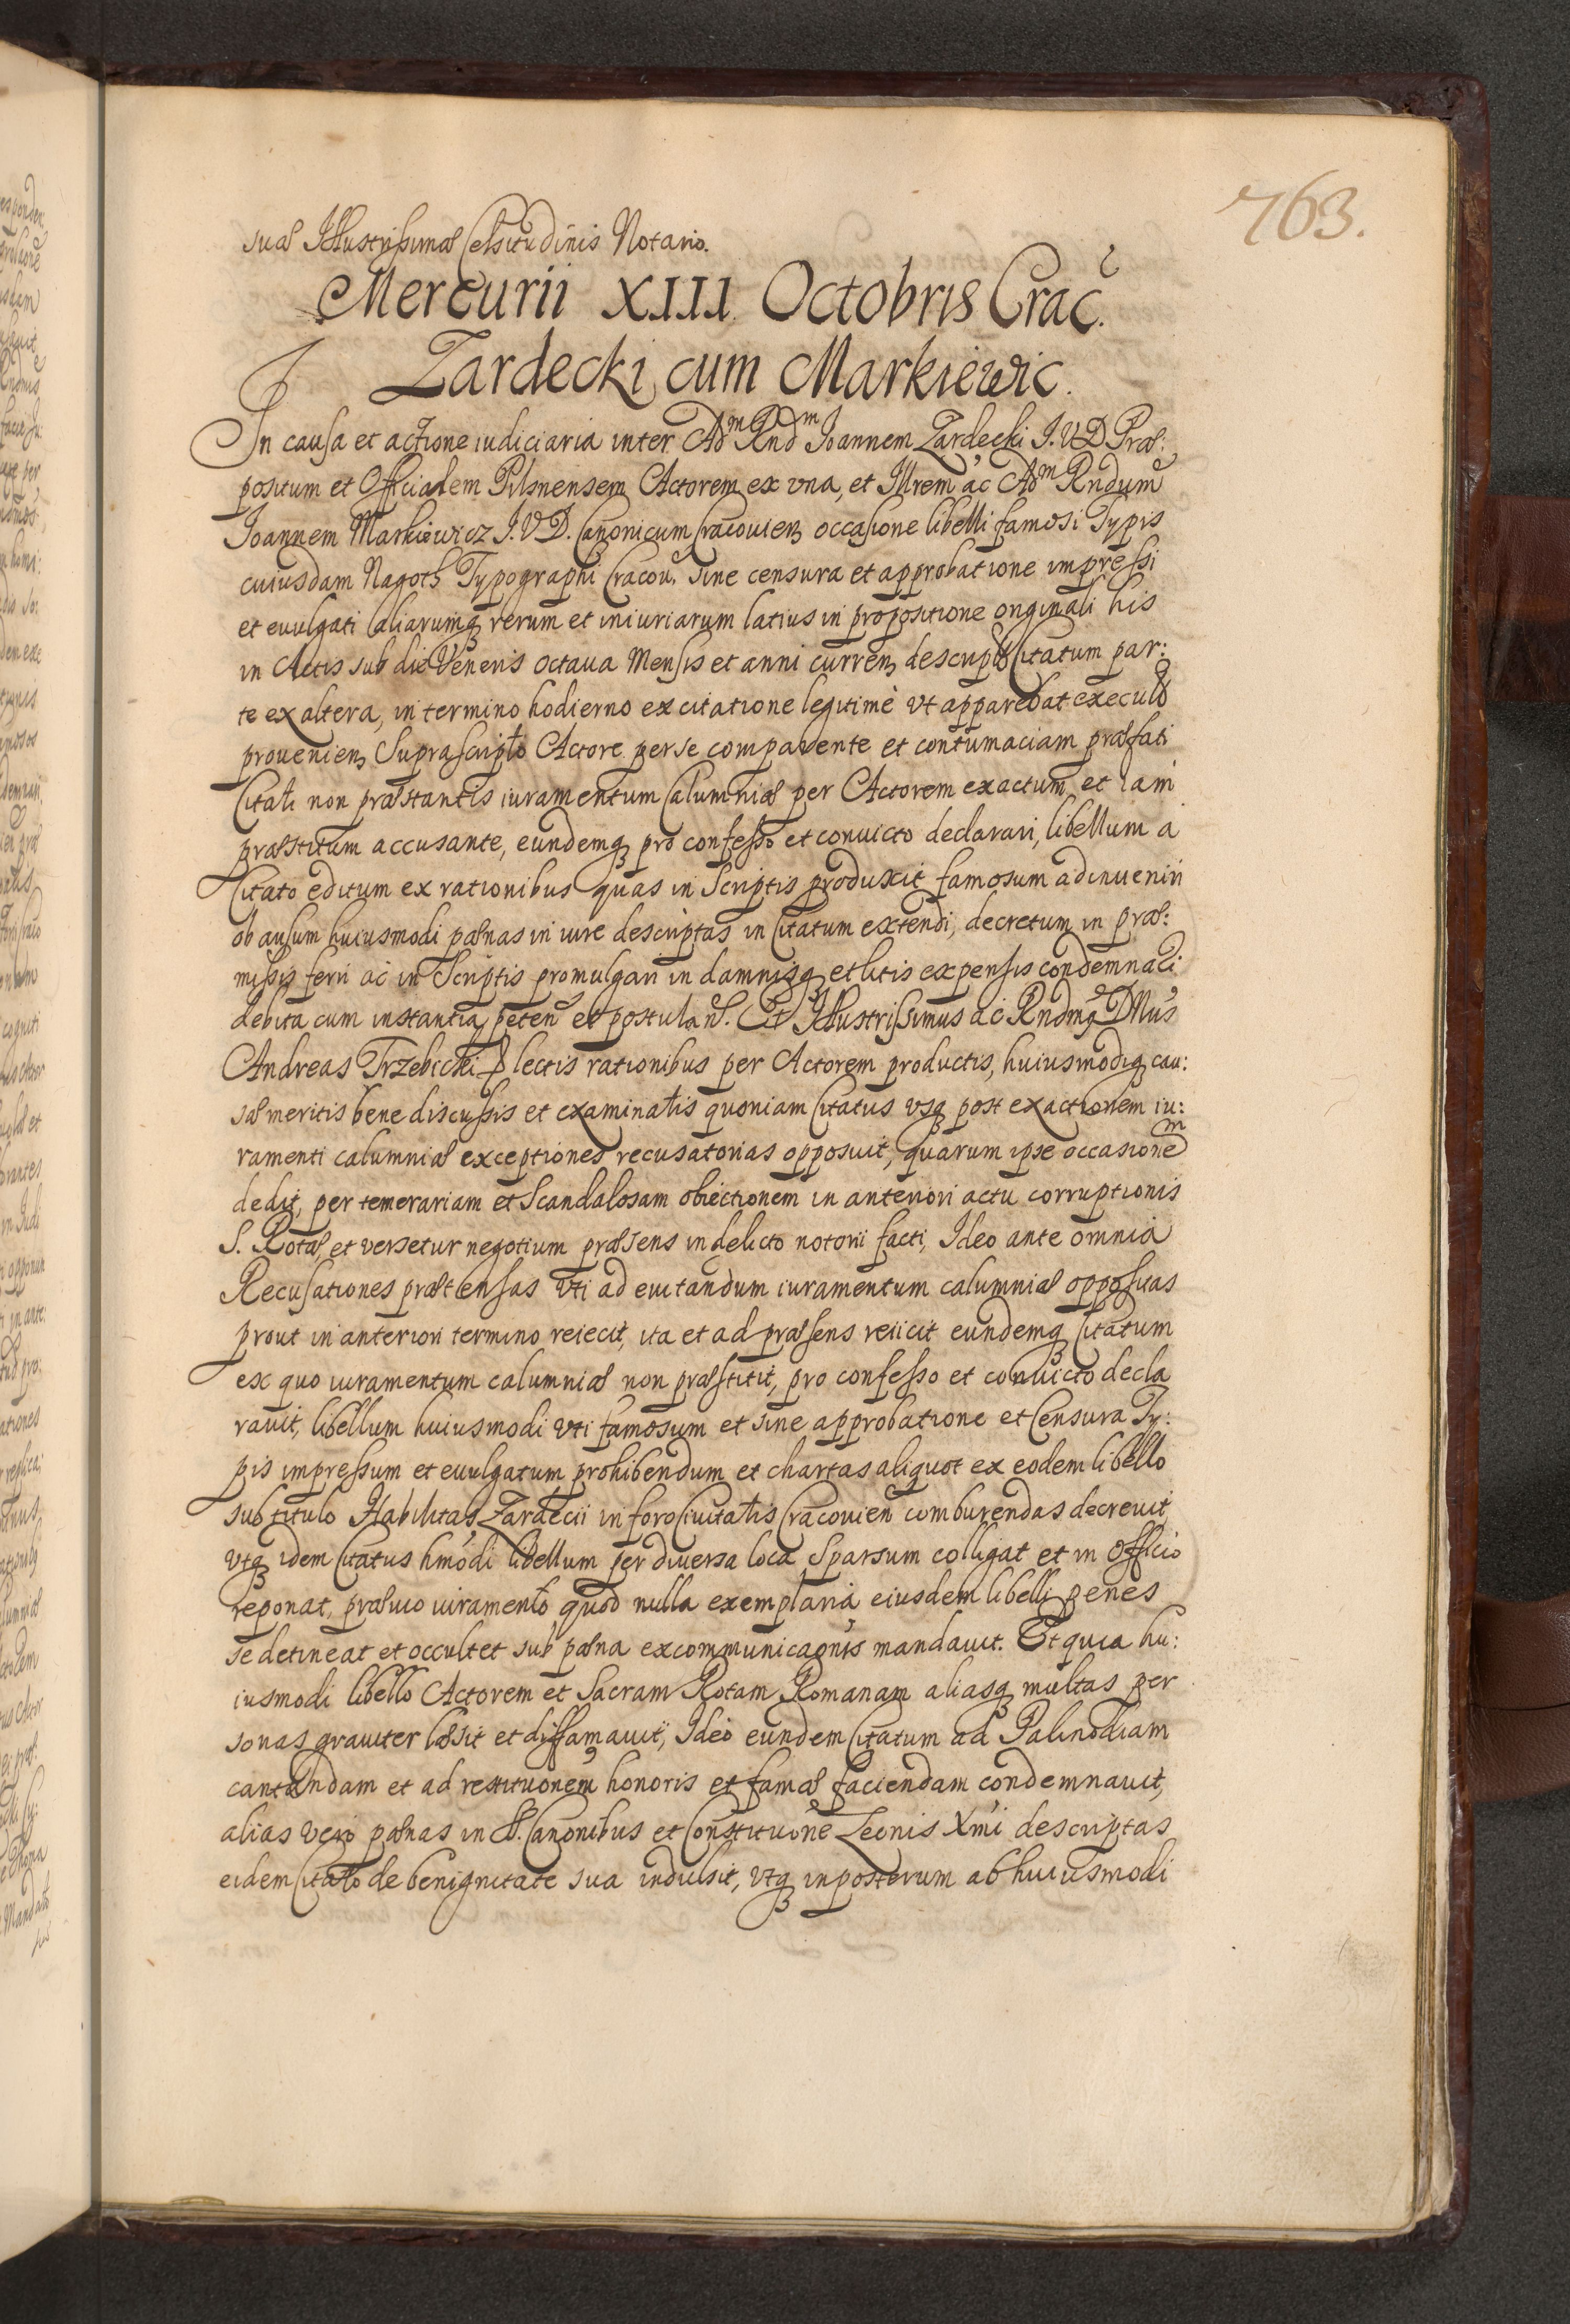 763.
suæ Illustrissimæ Celsitudinis Notario.
Mercurii XIII Octobris Crac.
Zardecki cum Markiewic.
In causa et actione iudiciaria inter Adm Rndm Ioannem Zardecki I. V. D. Præ:
positum et Officialem Pilsnensem Actorem ex vna, et Illrem ac Adm Rndum
Ioannem Markiewicz I. V. D. Canonicum Cracouien occasione libelli famosi Typis
cuiusdam Nagoth Typographi Cracou. sine censura et approbatione impressi
et euulgati aliarumq rerum et iniuriarum latius in propositione originali his
in Actis sub die Veneris octaua Mensis et anni curren descriptis Citatum par:
te ex altera, in termino hodierno ex citatione legitimè vt apparebat executo
prouenien, Suprascripto Actore per se comparente et contumaciam præfati
Citati non præstantis iuramentum Calumniæ per Actorem exactum et iam
præstitum accusante, eundemq pro confesso et conuicto declarari, libellum a
Citato editum ex rationibus quas in Scriptis produxit famosum adinueniri
ob ausum huiusmodi pænas in iure descriptas in Citatum extendi, decretum in præ:
missis ferri ac in Scriptis promulgari in damnisq et litis expensis condemnari
debita cum instantia peten et postulan. Et Illustrissimus ac Rndmq Dnus
Andreas Trzebicki lectis rationibus per Actorem productis, huiusmodiq cau:
sæ meritis bene discussis et examinatis quoniam Citatus vsq post exactionem iu:
ramenti calumniæ exceptiones recusatorias opposuit, quarum ipse occasionem
dedit, per temerariam et Scandalosam obiectionem in anteriori actu corruptionis
S. Rotæ, et versetur negotium præsens in delicto notorii facti, Ideo ante omnia
Recusationes prætensas vti ad euitandum iuramentum calumniæ oppositas
prout in anteriori termino reiecit, ita et ad præsens reiicit eundemq Citatum
ex quo iuramentum calumniæ non præstitit, pro confesso et conuicto decla
rauit, libellum huiusmodi vti famosum et sine approbatione et Censura Ty:
pis impressum et euulgatum prohibendum et chartas aliquot ex eodem libello
sub titulo Habilitas Zardecii in foro Ciuitatis Cracouien comburendas decreuit,
vtq idem Citatus hmodi libellum per diuersa loca Sparsum colligat et in Officio
reponat, præuio iuramento quod nulla exemplaria eiusdem libelli penes
se detineat et occultet sub pæna excommunicaonis mandauit. Et quia hu:
iusmodi libello Actorem et Sacram Rotam Romanam aliasq multas per
sonas grauiter læsit et diffamauit, Ideo eundem Citatum ad Palinodiam
cantandam et ad restituonem honoris et famæ faciendam condemnauit,
alias vero pænas in SS. Canonibus et Constituone Leonis Xmi descriptas
eidem Citato de benignitate sua indulsit, vtq inposterum ab huiusmodi